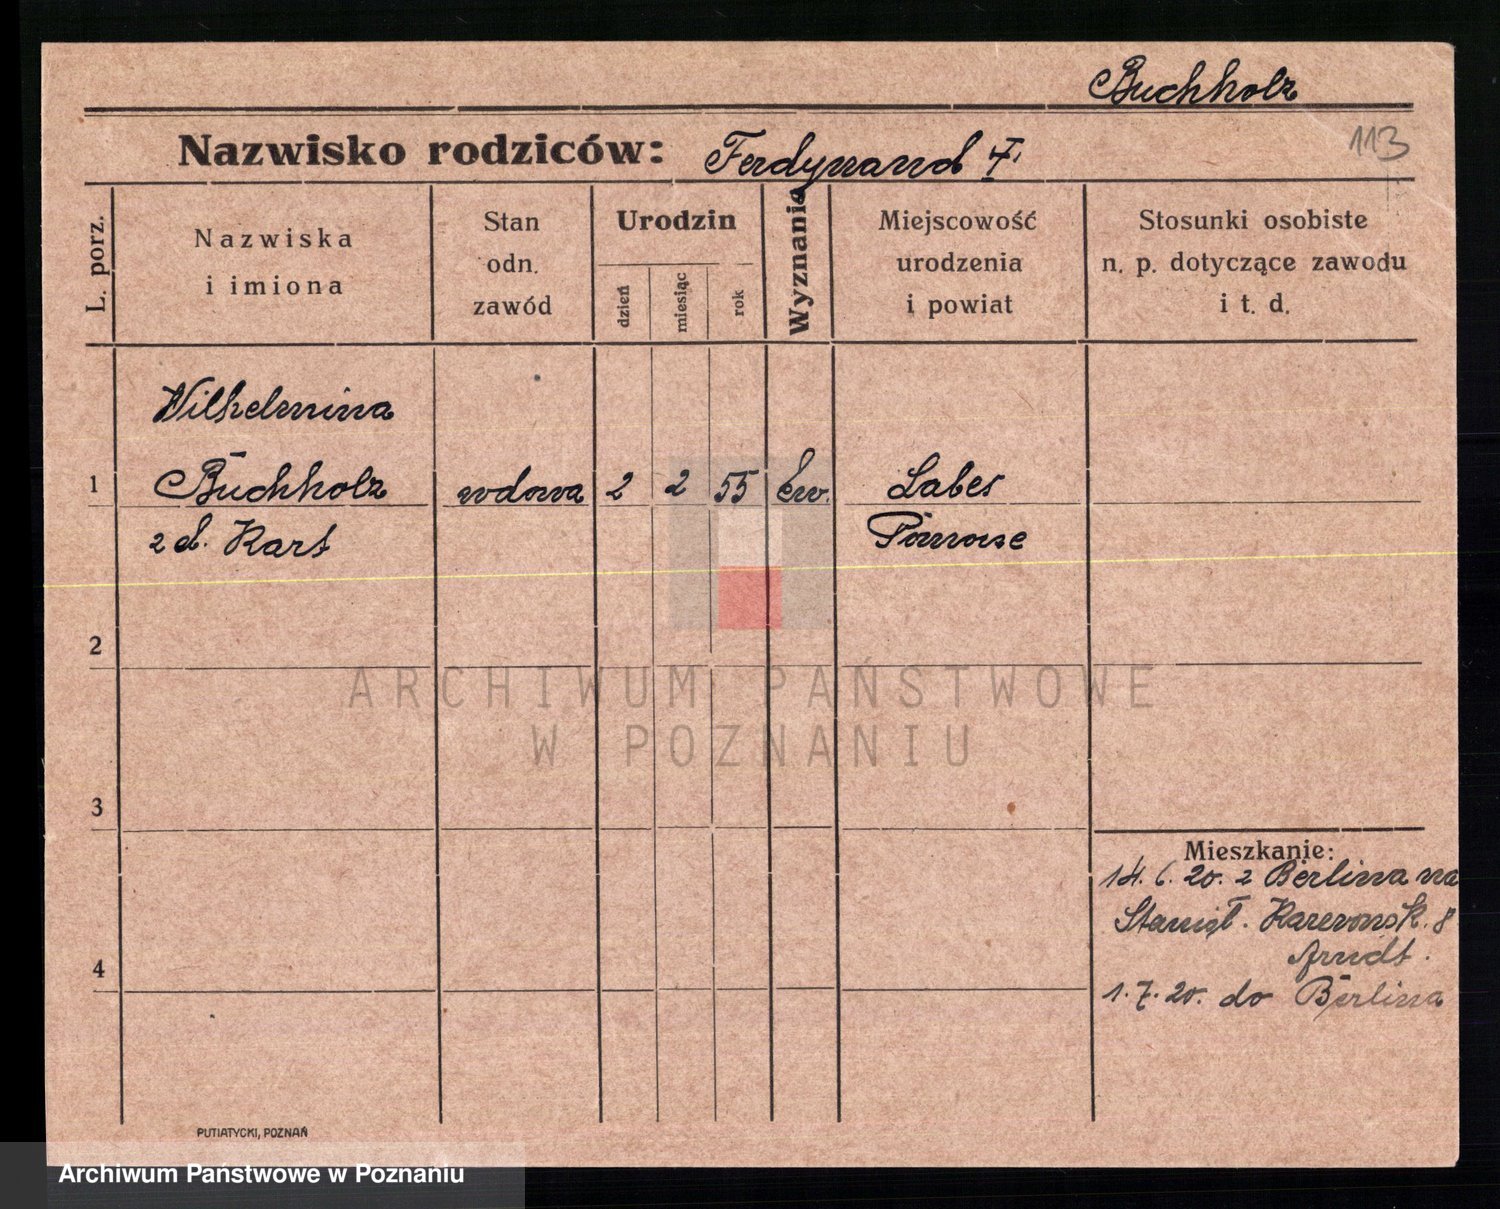 Buchholz
Nazwisko rodziców: Ferdynand
113
L. porz.
Nazwiska
i imiona
Stan
odn.
zawód
Urodzin
dzień
miesiąc
rok
Wyznanie
Miejscowość
urodzenia
i powiat
Stosunki osobiste
n. p. dotyczące zawodu
i t. d.
Wilhelmina
1 Buchholz wdowa 2 2 55 Ew. Labes
z d.
2
3
4
Mieszkanie:
14. 6. 20. z Berlina na
8
Arndt.
1. 7. 20. do Berlina
PUTIATYCKI, POZNAŃ
ARCHIWUM PAŃSTWOWE
W POZNANIU
Archiwum Państwowe w Poznaniu